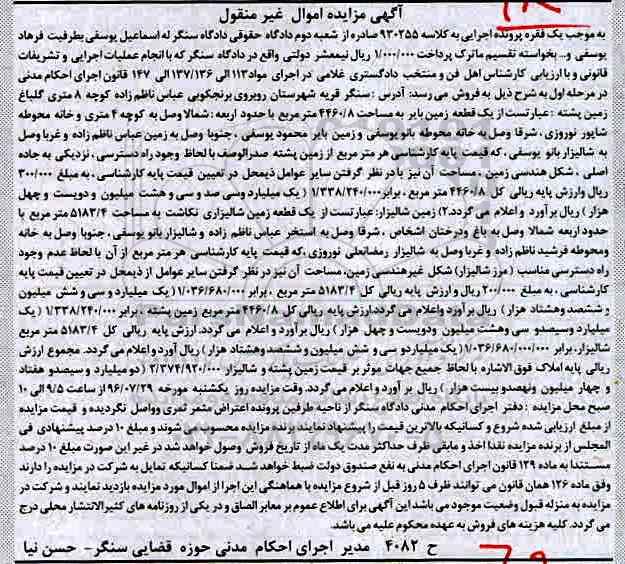 آگهی مزایده اموال غیر منقول
به موجب یک فقره پرونده اجرایی به کلاسه ۹۳۰۲۵۵ صادره از شعبه دوم دادگاه حقوقی دادگاه سنگر له اسماعیل یوسفی بطرفیت فرهاد
یوسفی و.. بخواسته تقسیم ماترک پرداخت ۱/۰۰۰/۰۰۰ ریال نیمعشر دولتی واقع در دادگاه سنگر که با انجام عملیات اجرایی و تشریفات
قانونی و با ارزیابی کارشناس اهل فن و منتخب دادگستری غلامی در اجرای مواد ۱۱۳ الی ۱۳۷/۱۳۶ الی ۱۴۷ قانون اجرای احکام مدنی
در مرحله اول به شرح ذیل به فروش می رسد: آدرس : سنگر قریه شهرستان روبروی برنجکوبی عباس ناظم زاده کوچه ۸ متری گلباغ
زمین پشته : عبارتست از یک قطعه زمین بایر به مساحت ۴۴۶۰/۸ متر مربع با حدود اربعه : شمالا وصل به کوچه ۴ متری و خانه محوطه
شاپور نوروزی ، شرقا وصل به خانه محوطه بانو یوسفی و زمین بایر محمود یوسفی ، جنوبا وصل به زمین عباس ناظم زاده و غربا وصل
به شالیزار بانو یوسفی ، که قیمت پایه کارشناسی هر متر مربع از زمین پشته صدرالوصف با لحاظ وجود راه دسترسی ، نزدیکی به جاده
اصلی ، شکل هندسی زمین ، مساحت آن نیز با در نظر گرفتن سایر عوامل ذیمحل در تعیین قیمت پایه کارشناسی ، به مبلغ ۳۰۰/۰۰۰
ریال وارزش پایه ریالی کل ۴۴۶۰/۸ متر مربع ، برابر ۱/۳۳۸/۲۴۰/۰۰۰ ( یک میلیارد وسی صد و سی و هشت میلیون و دویست و چهل
هزار ) ریال برآورد و اعلام می گردد.۲) زمین شالیزار: عبارتست از یک قطعه زمین شالیزاری نکاشت به مساحت ۵۱۸۳/۴ متر مربع با
حدود اربعه شمالا وصل به باغ ودرختان اشخاص ، شرقا وصل به استخر عباس ناظم زاده و شالیزار بانو یوسفی ، جنوبا وصل به خانه
ومحوطه فرشید ناظم زاده و غربا وصل به شالیزار رمضانعلی نوروزی ،که قیمت پایه کارشناسی هر متر مربع از آن با لحاظ عدم وجود
راه دسترسی مناسب ( مرز شالیزار) شکل غیرهندسی زمین، مساحت آن نیز در نظر گرفتن سایر عوامل از ذیمحل در تعیین قیمت پایه
کارشناسی ، به مبلغ ۲۰۰/۰۰۰ ریال و ارزش پایه ریالی کل ۵۱۸۳/۴ متر مربع ، برابر ۱/۰۳۶/۶۸۰/۰۰۰ ( یک میلیارد و سی و شش میلیون
و ششصد وهشتاد هزار ) ریال برآورد واعلام می گردد.ارزش پایه ریالی کل ۴۴۶۰/۸ متر مربع زمین پشته ، برابر ۱/۳۳۸/۲۴۰/۰۰۰ ( یک
میلیارد وسیصدو سی وهشت میلیون ودویست و چهل هزار ) ریال برآورد و اعلام می گردد. ارزش پایه ریالی کل ۵۱۸۳/۴ متر مربع
شالیزار، برابر ۱/۰۳۶/۶۸۰/۰۰۰/۰۰۰ ( یک میلیاردو سی و شش میلیون و ششصد وهشتاد هزار ) ریال برآورد و اعلام می گردد. مجموع ارزش
ریالی پایه املاک فوق الاشاره با لحاظ جمیع جهات موثر بر قیمت زمین پشته و شالیزار ۲/۳۷۴/۹۲۰/۰۰۰ ( دو میلیارد و سیصدو هفتاد
و چهار میلیون ونهصدو بیست هزار ) ریال بر آورد و اعلام می گردد. وقت مزایده روز یکشنبه مورخه ۹۶/۰۷/۲۹ از ساعت ۹/۵ الی ۱۰
صبح محل مزایده : دفتر اجرای احکام مدنی دادگاه سنگر از ناحیه طرفین پرونده اعتراض مثمر ثمری وواصل نگردیده و قیمت مزایده
از مبلغ ارزیابی شده شروع و کسانیکه بالاترین قیمت را پیشنهاد نمایند برنده مزایده محسوب می شوند و مبلغ ۱۰ درصد پیشنهادی فی
المجلس از برنده مزایده نقدا اخذ و مابقی ظرف حداکثر مدت یک ماه از تاریخ فروش وصول خواهد شد در غیر این صورت مبلغ ۱۰ درصد
مستندا به ماده ۱۲۹ قانون اجرای احکام مدنی به نفع صندوق دولت ضبط خواهد شد ضمنا کسانیکه تمایل به شرکت در مزایده را دارند
وفق ماده ۱۲۶ همان قانون می توانند ظرف ۵ روز قبل از شروع مزایده با هماهنگی این اجرا از اموال مورد مزایده بازدید نمایند و شرکت در
مزایده به منزله قبول وضعیت موجود می باشد این آگهی برای اطلاع عموم بر معابر الصاق و در یکی از روزنامه های کثیرالانتشار محلی درج
می گردد. کلیه هزینه های فروش به عهده محکوم علیه می باشد.
ح ۴۰۸۲ مدیر اجرای احکام مدنی حوزه قضایی سنگر- حسن نیا